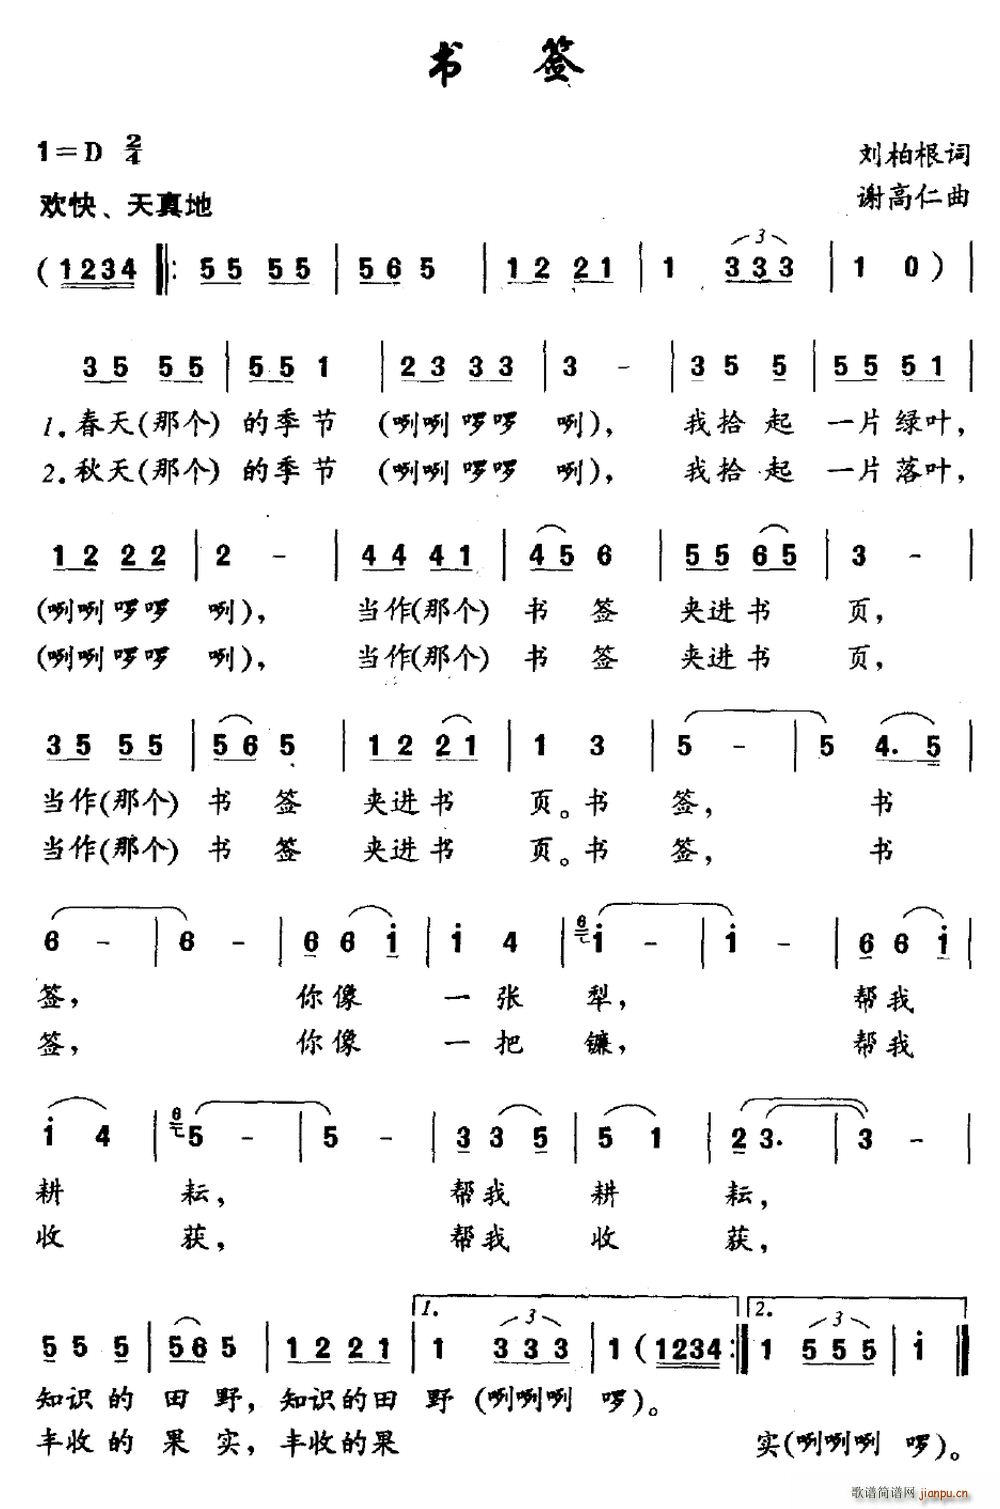 书 签
1=D 2/4
刘柏根词
欢快、天真地
谢高仁曲
(1234 ‖: 55 55 | 565 | 12 21 | 1 333 | 1 0) |
3
35 55 | 55 1 | 23 33 | 3 - | 35 5 | 55 51 |
1.春天(那个)的季节 (咧咧啰啰 咧), 我拾起 一片绿叶,
2.秋天(那个)的季节 (咧咧啰啰 咧), 我拾起 一片落叶,
12 22 | 2 - | 44 41 | 45 6 | 55 65 | 3 - |
(咧咧啰啰 咧), 当作(那个) 书 签 夹进书 页,
(咧咧啰啰 咧), 当作(那个) 书 签 夹进书 页,
35 55 | 56 5 | 12 21 | 1 3 | 5 - | 5 4.5 |
当作(那个) 书 签 夹进书 页。书 签, 书
当作(那个) 书 签 夹进书 页。书 签, 书
6 - | 6 - | 6 6 i | i 4 | 6 i - | i - | 6 6 i |
签, 你像 一张 犁, 帮我
签, 你像 一把 镰, 帮我
i 4 | 6 5 - | 5 - | 3 3 5 | 5 1 | 2 3. | 3 - |
耕 耘, 帮我 耕 耘,
收 获, 帮我 收 获,
1. 3 2. 3
5 5 5 | 56 5 | 12 21 | 1 333 | 1 (1234 :‖ 1 555 | i ‖
知识的 田 野, 知识的田 野 (咧咧咧 啰)。
丰收的 果 实, 丰收的果 实(咧咧咧 啰)。
歌谱简谱网 jianpu.cn